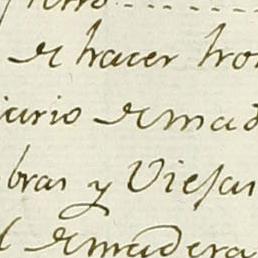 de hacer
ario de mad
bras y Viejas
de madera